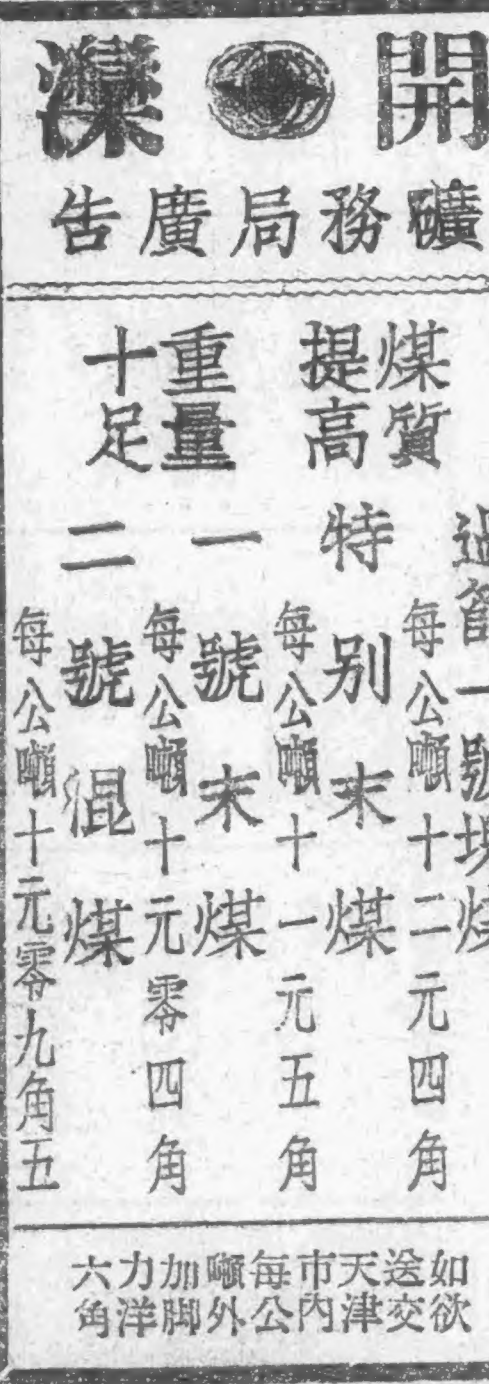 開灤
礦務局廣告
煤質
提高
重量
十足
過篩一號塊煤
每公噸十二元四角
特別末煤
每公噸十一元五角
一號末煤
每公噸十元零四角
二號混煤
每公噸十元零九角五
如欲
送交
天津
市內
每公
噸外
加脚
力洋
六角